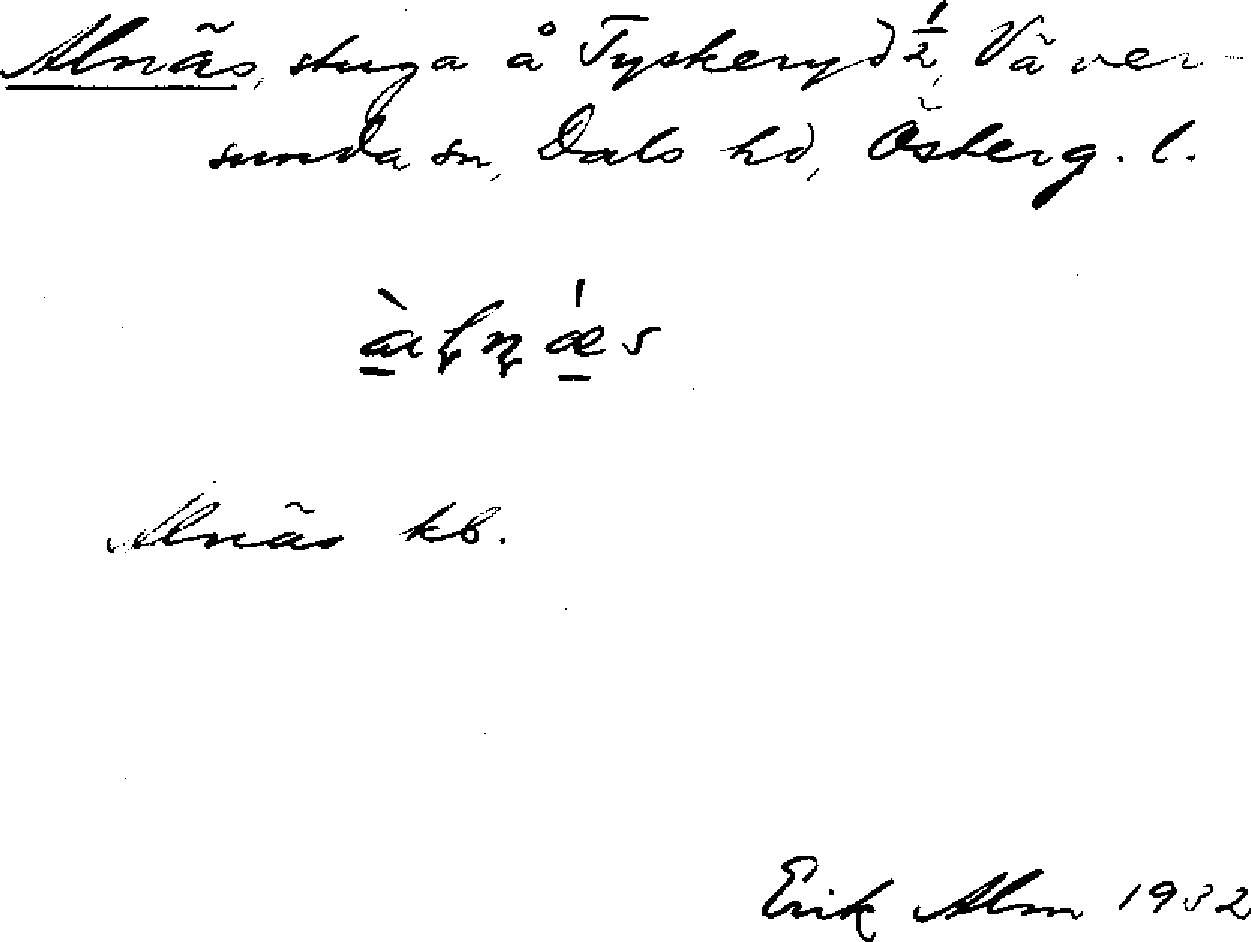 Alnäs, stuga å Tyskeryd ½, Väver-
sunda sn, Dals hd, Österg. l.
Alnäs kb.
Erik Alm 1932